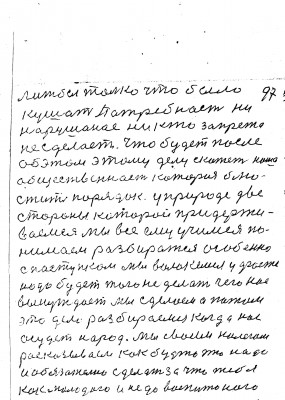 литься только что было 97
кушат Патребнаст ни
нарушаная никто запрета
несделает. Что будет после
обэтом этому делу скажет наша
общественнаст катория блю-
стить порядок. у природе две
стороны которой придержи-
ваемся мы все ему учимся по-
нимаем разбиратся особенно
с паступком мы
надо будет того не делат чего нас
вынуждает мы сделаем а патом
это дело разбираемся когда нас
асудет народ. Мы своем
расказываем как будто это надо
и обязательно сделат за что тебя
как молодого и недовоспитоного